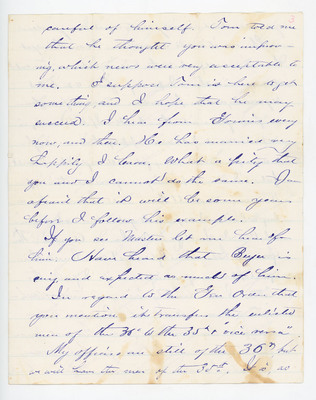 careful of himself. Tom told me
that he thought you was improv-
ing, which news were very acceptable to
me. I suppose Tom is here to get
something and I hope that he may
succeed. I hear from every
now and then. He has married very
happily I learn. What a pity that
you and I cannot do the same. I am
afraid that it will be some years
before I follow his example.
If you see let me know of
him. Have heard that is
and expected as much of him.
In regard to the Gen Order that
you mention it transfers the enlisted
men of the 36th to the 35th & "vice versa"
My officers are still of the 36th but
we will have the men of the 35th. It is, as